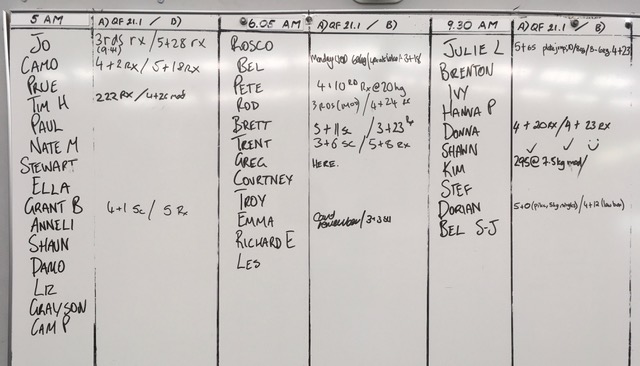 5 AM A) QF 21.1 / B)
JO 3 rds rx / 5+28 rx
(9:41)
CAMO 4+2 RX / 5+18 RX
PRUE
TIM H 222 RX / 4+26 mod
PAUL
NATE M
STEWART
ELLA
GRANT B 4+1 Sc / 5 Rx
ANNELI
SHAUN
DAMO
LIZ
GRAYSON
CAM P
6.05 AM A) QF 21.1 / B)
ROSCO
BEL Monday 3+18
PETE 4+10 RD RX @ 20kg
ROD 3 RDS (MOD) / 4+24
BRETT 5+11 sc / 3+23
TRENT 3+6 SC / 5+8 RX
GREG HERE.
COURTNEY
TROY
EMMA Can't remember / 3+
RICHARD E
LES
9.30 AM A) QF 21.1 / B)
JULIE L 5+65 4+23
BRENTON
IVY
HANNA P
DONNA 4+20 RX / 4+23 RX
SHAWN
KIM 295 @ 7.5kg mod /
STEF
DORIAN 5+0 / 4+12 (low bar)
BEL S-J